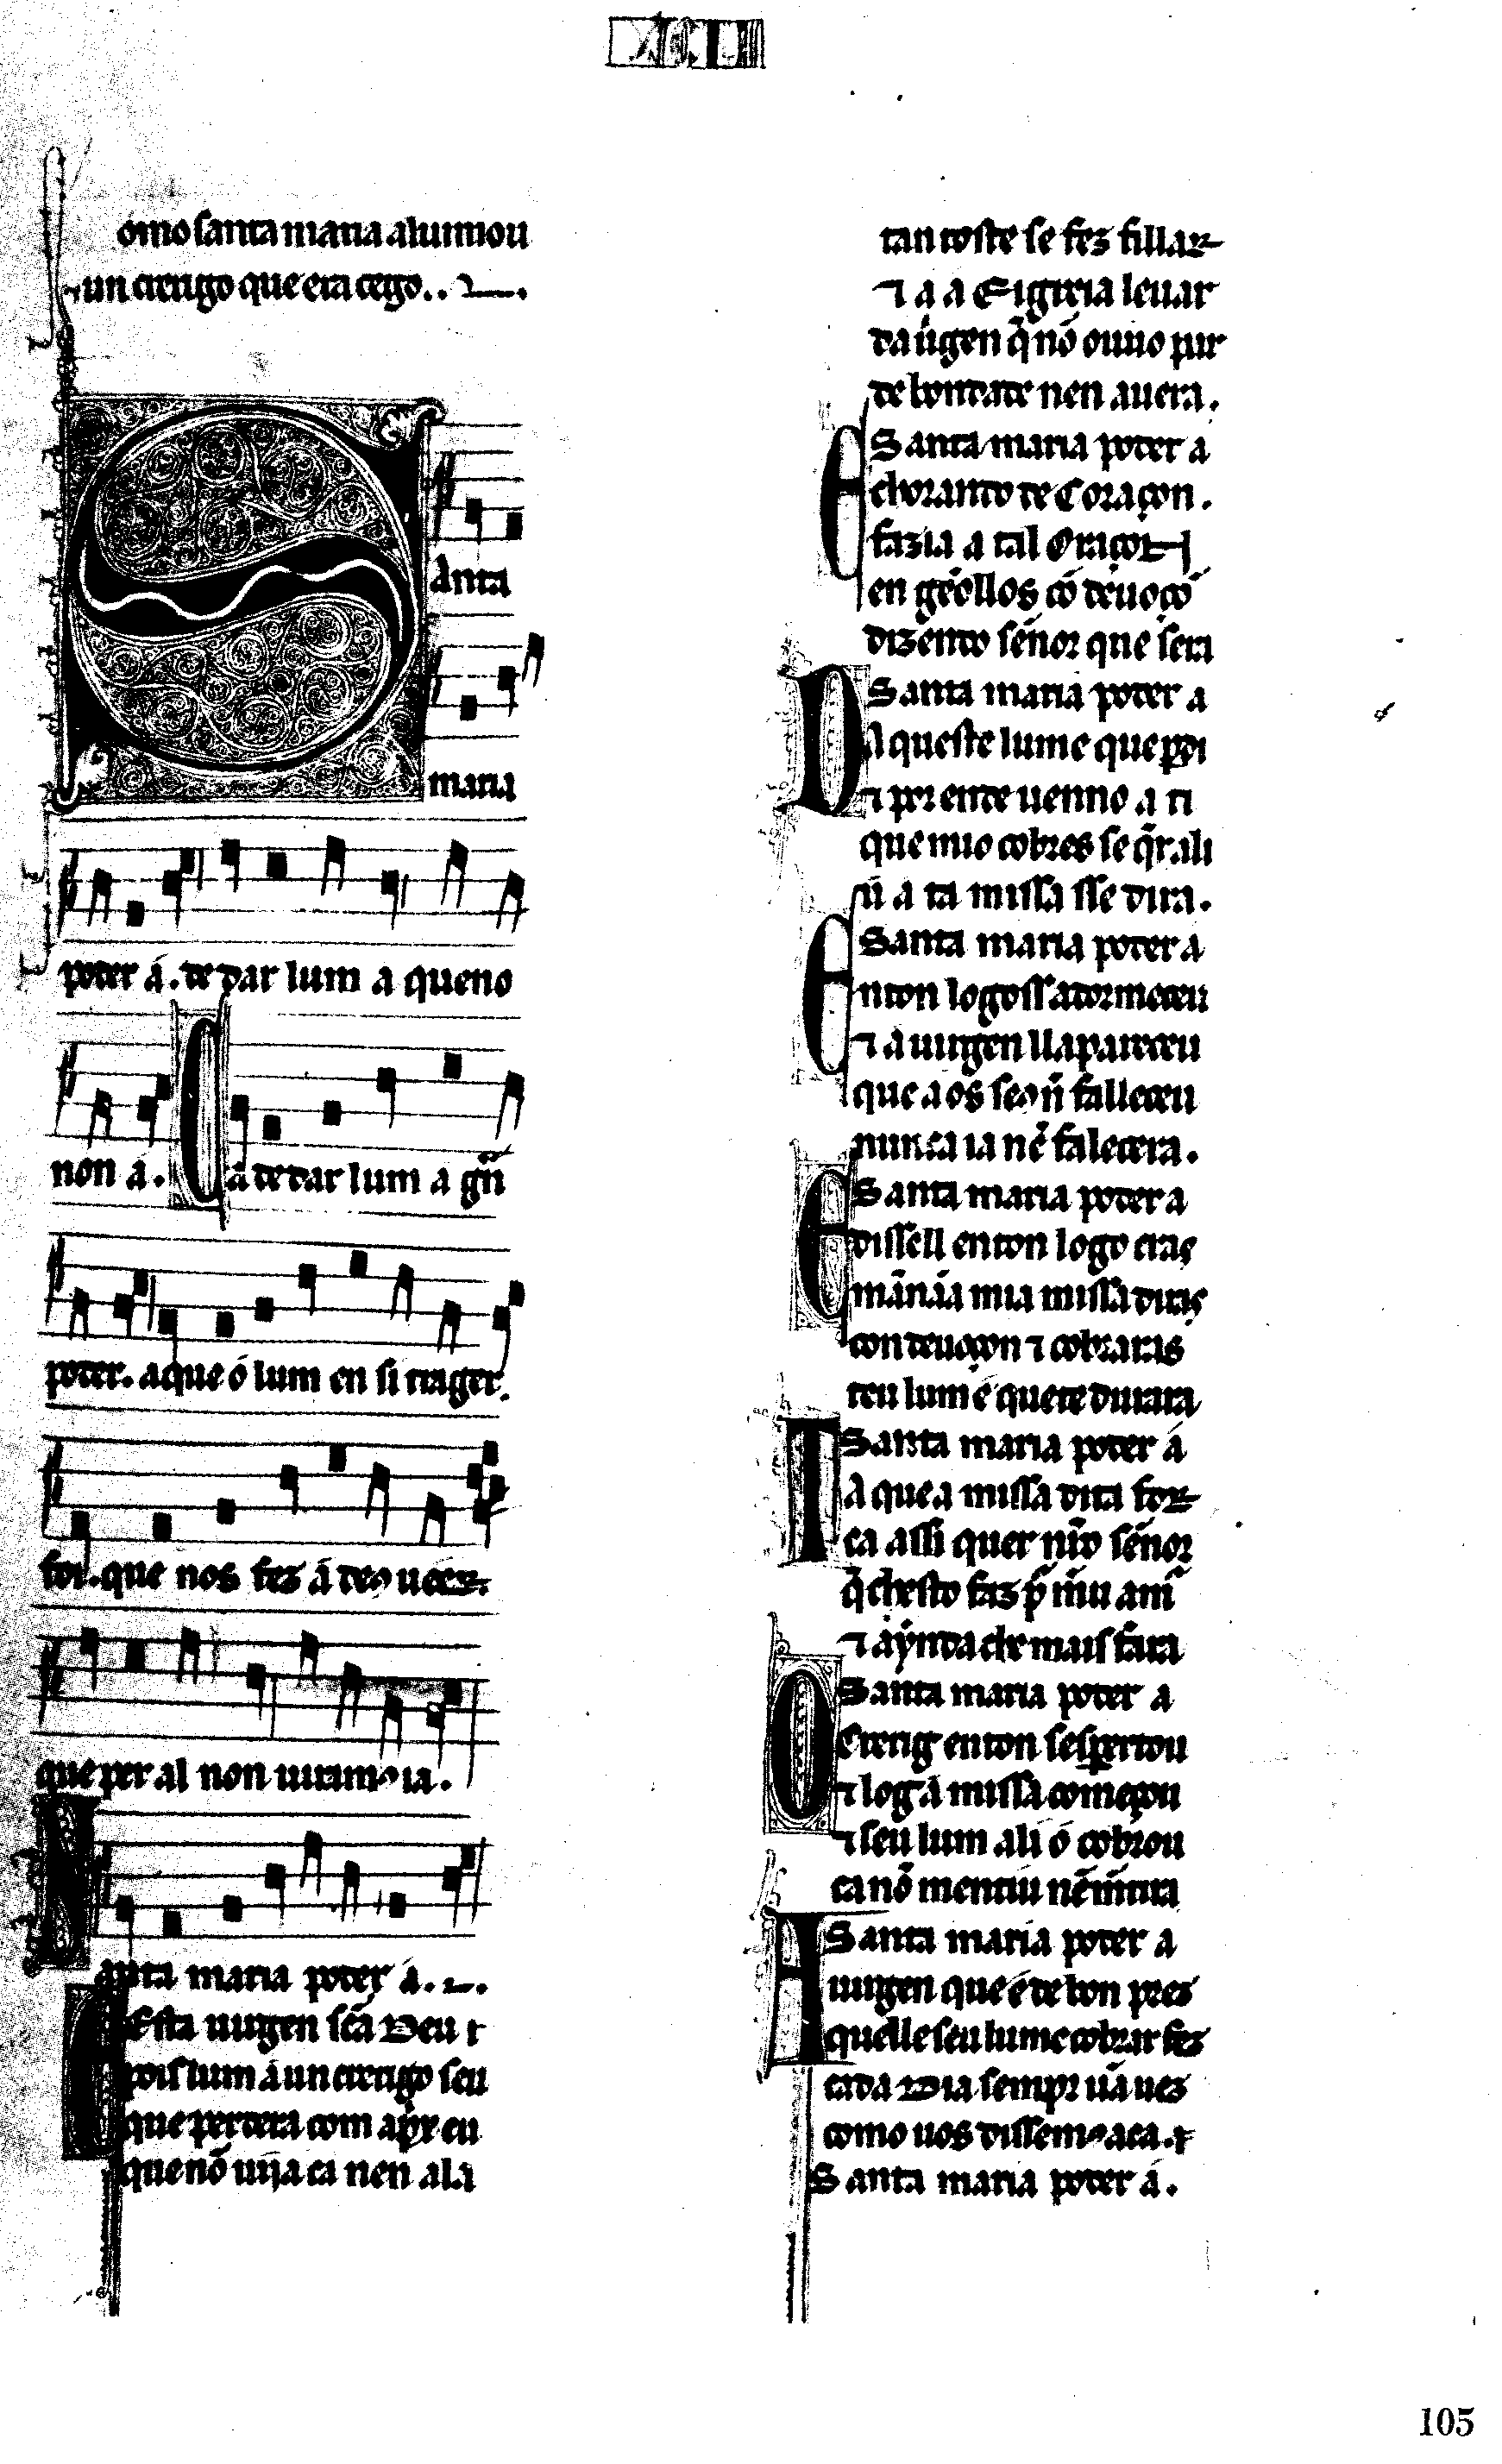 XCII
Como santa maria alumeou
un crerigo que era cego..
Santa
maria
poder á. de dar lum a queno
non á. Ca de dar lum á gñ
poder. aque ó lum en si trager.
foi. que nos fez á deꝯ ueer.
que per al non uiramꝯ ia.
Santa maria poder á.
Esta uirgen scã Deu ⁊
pois lum á un crerigo seu
que perdera com apr̃ eu
que nõ uija ca nen alá
tan toste se fez fillar
⁊ a a Eigreia leuar
da uirgen q̃ nõ ouuo par
de bondade nen auera.
Santa maria poder a
E chorando de Coraçon.
fazia a tal Oraçon
en gẽollos cõ deuoçõ
dizendo sẽnor que sera
Santa maria poder a
D Aqueste lume que ꝑdi
⁊ por ende uenno a ti
que mio cobres se q̃r ali
ũ a ta missa sse dira.
Santa maria poder á
Enton logo ss adormeceu
⁊ a uirgen ll apareceu
que aos seꝯ ñ falleceu
nunca ia nẽ falecera.
Santa maria poder a
E dissell enton logo cras
mãnãa mia missa diras
con deuoçon ⁊ cobraras
teu lum é que te durara
Santa maria poder á
Ta que a missa dita for
ca assi quer nr̃o sẽnor
q̃ ch esto faz p̃ meu am̃
⁊ aynda che mais fara
Santa maria poder a
O Crerig enton se sꝑertou
⁊ log á missa começou
⁊ seu lum ali ó cobrou
ca nõ mentiu nẽ mẽtira
Santa maria poder a
A uirgen que é de bon prez
quelle seu lume cobrar fez
cada Dia sempr ũa uez
como uos dissemꝯ aca. ⁊
Santa maria poder á.
105